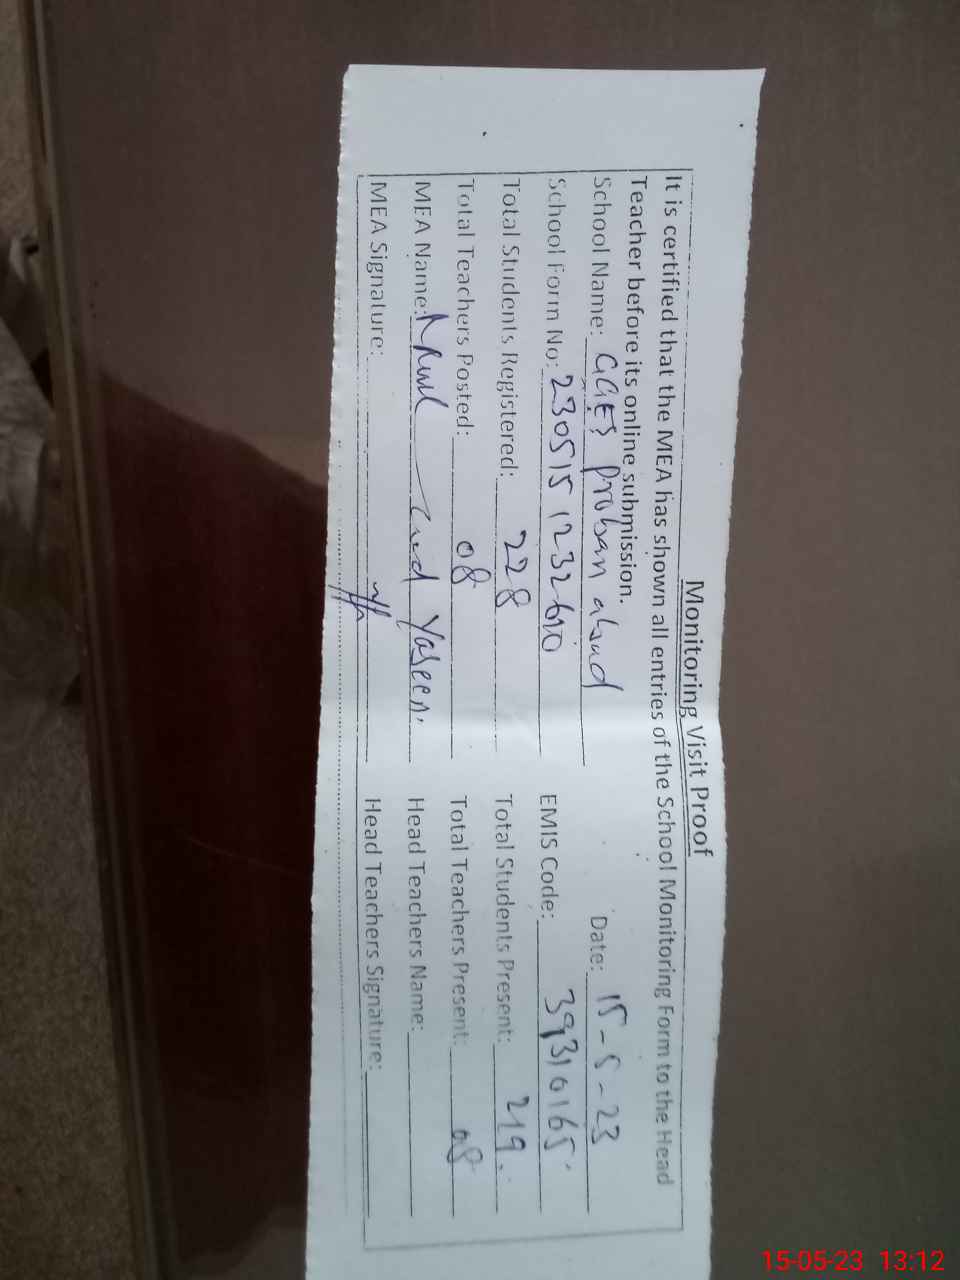 Monitoring Visit Proof
It is certified that the MEA has shown all entries of the School Monitoring Form to the Head
Teacher before its online submission.
School Name: GGES Proban abad Date: 15-5-23
School Form No: 230515 1232610 EMIS Code: 39310165
Total Students Registered: 228 Total Students Present: 219.
Total Teachers Posted: 08 Total Teachers Present: 08
MEA Name: Yaseen. Head Teachers Name:
MEA Signature: Head Teachers Signature:
15-05-23 13:12